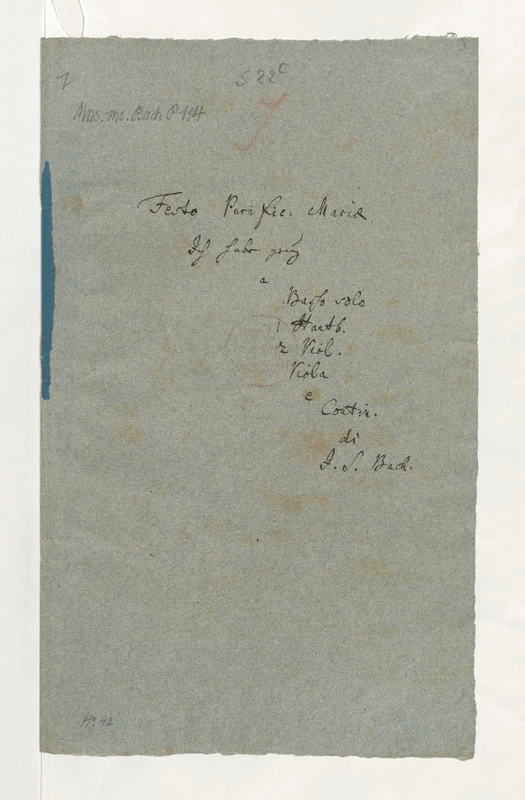 S 22c
Mus. ms. Bach P 114
7.
Festo Purific. Mariæ
Ich habe genug
a
Basso solo
1 Hautb.
2 Viol.
Viola
e
Contin.
di
J. S. Bach.
No 42